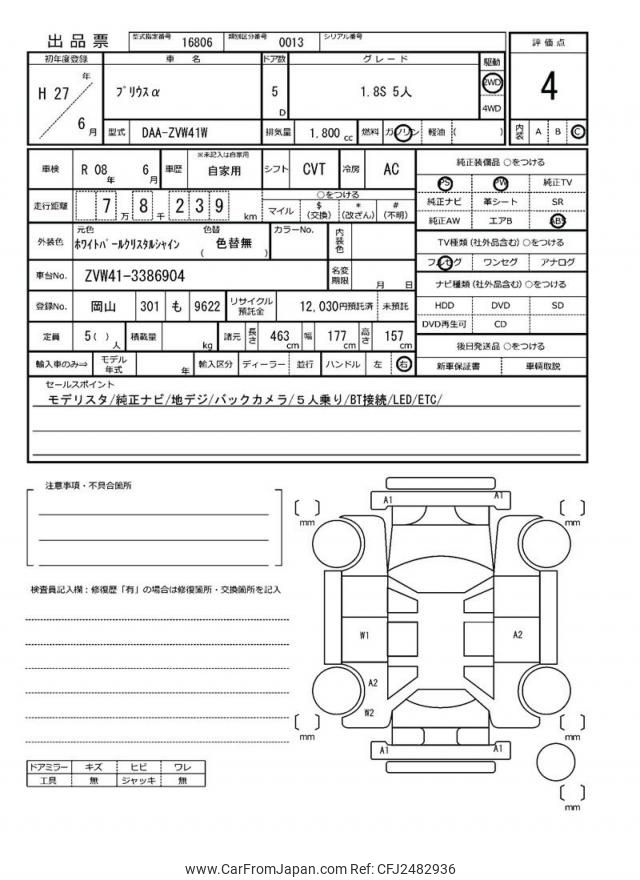 出品票 型式指定番号 16806 類別区分番号 0013 シリアル番号
初年度登録 車 名 ドア数 グレード 駆動 評価点
H 27 年 6 月 プリウスα 5 D 1.8S 5人 2WD 4WD 4
型式 DAA-ZVW41W 排気量 1,800 cc 燃料 ガソリン 軽油 ( ) 内装 A B C
車検 R 08 年 6 月 車歴 ※未記入は自家用 自家用 シフト CVT 冷房 AC
純正装備品 ○をつける
PS PW 純正TV
走行距離 7 万 8 千 2 3 9 km ○をつける マイル $ (交換) * (改ざん) # (不明)
純正ナビ 革シート SR
純正AW エアB ABS
外装色 元色 ホワイトパールクリスタルシャイン 色替 ( 色替無 ) カラーNo. 内装色
TV種類 (社外品含む) ○をつける
フルセグ ワンセグ アナログ
車台No. ZVW41-3386904 名変期限 月 日
ナビ種類 (社外品含む) ○をつける
登録No. 岡山 301 も 9622 リサイクル預託金 12,030円預託済 未預託
HDD DVD SD
DVD再生可 CD
定員 5 ( ) 人 積載量 kg 諸元 長さ 463 cm 幅 177 cm 高さ 157 cm
後日発送品 ○をつける
輸入車のみ⇒ モデル年式 年 輸入区分 ディーラー 並行 ハンドル 左 右
新車保証書 車輌取説
セールスポイント
モデリスタ/純正ナビ/地デジ/バックカメラ/５人乗り/BT接続/LED/ETC/
注意事項・不具合箇所
検査員記入欄：修復歴「有」の場合は修復箇所・交換箇所を記入
A1 A1
mm mm
W1 A2
A2
W2
mm mm
A1 A1
mm
ドアミラー キズ ヒビ ワレ
工具 無 ジャッキ 無
www.CarFromJapan.com Ref: CFJ2482936